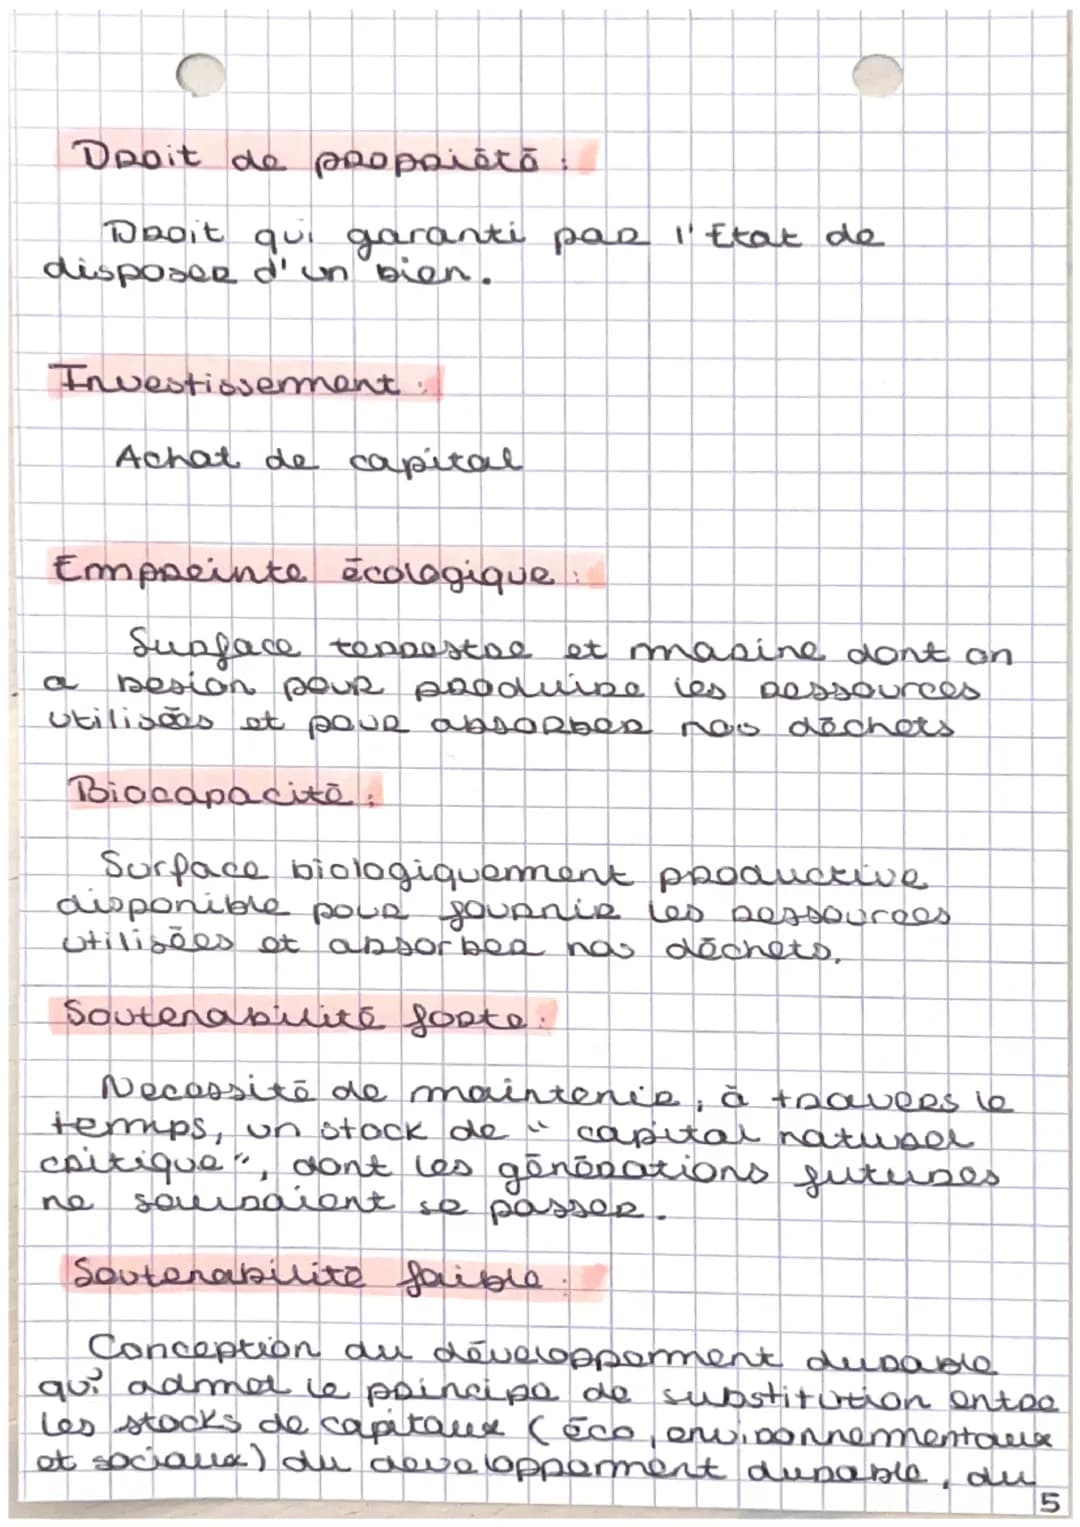 Droit de propriété :
Droit qui garanti par l'Etat de
disposer d'un bien.
Investissement :
Achat de capital
Empreinte écologique :
Surface terrestre et marine dont on
a besion pour produire les ressources
utilisées et pour absorber nos déchets
Biocapacité :
Surface biologiquement productive
disponible pour fournir les ressources
utilisées et absorber nos déchets.
Soutenabilité forte :
Necessité de maintenir, à travers le
temps, un stock de " capital naturel
critique", dont les générations futures
ne sauraient se passer.
Soutenabilité faible :
Conception du développement durable
qui admet le principe de substitution entre
les stocks de capitaux (éco, environnementaux
et sociaux) du developpement durable, du
5